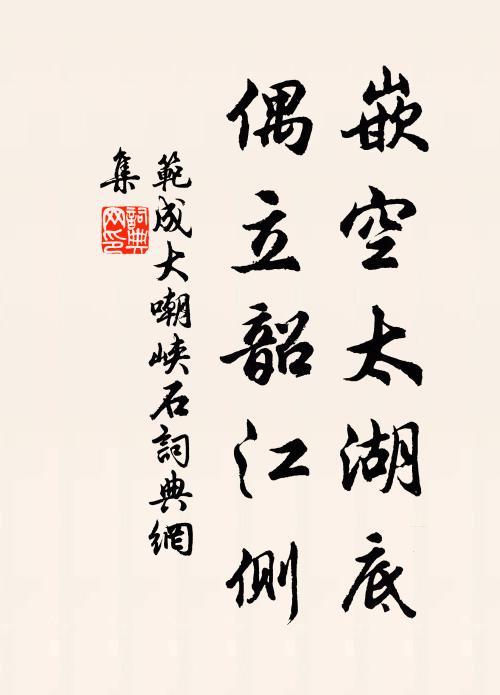 嵌空太湖底
偶立韶江側
範成大嘲峽石詞典網
集
詞典网印